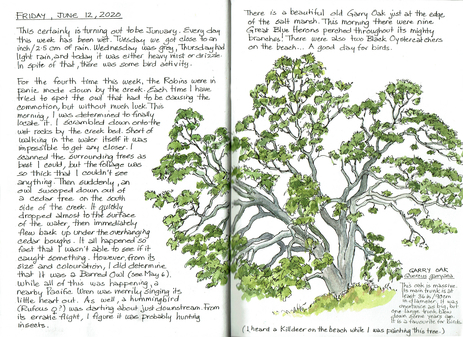 FRIDAY, JUNE 12, 2020
This certainly is turning out to be Junuary. Every day
this week has been wet. Tuesday we got close to an
inch/2.5 cm of rain. Wednesday was grey, Thursday had
light rain, and today it was either heavy mist or drizzle.
In spite of that, there was some bird activity.
For the fourth time this week, the Robins were in
panic mode down by the creek. Each time I have
tried to spot the owl that had to be causing the
commotion, but without much luck. This
morning, I was determined to finally
locate it. I scrambled down onto the
wet rocks by the creek bed. Short of
walking in the water itself it was
impossible to get any closer. I
scanned the surrounding trees as
best I could, but the foliage was
so thick that I couldn't see
anything. Then suddenly, an
owl swooped down out of
a cedar tree on the south
side of the creek. It quickly
dropped almost to the surface
of the water, then immediately
flew back up under the overhanging
cedar boughs. It all happened so
fast that I wasn't able to see if it
caught something. However, from its
size and colouration, I did determine
that it was a Barred Owl (see May 6).
While all of this was happening, a
nearby Pacific Wren was merrily singing its
little heart out. As well, a hummingbird
(Rufous ♀?) was darting about just downstream. From
its erratic flight, I figure it was probably hunting
insects.
There is a beautiful old Garry Oak just at the edge
of the salt marsh. This morning there were nine
Great Blue Herons perched throughout its mighty
branches! There were also two Black Oystercatchers
on the beach... A good day for birds.
GARRY OAK
Quercus garryana
This oak is massive.
Its main trunk is at
least 36 in/91cm
in diameter. It was
once twice as big, but
one large trunk blew
down some years ago.
It is a favourite for birds.
(I heard a Killdeer on the beach while I was painting this tree.)